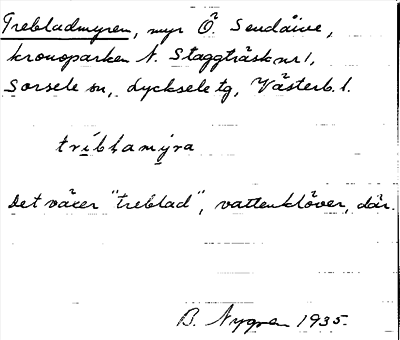 Trebladmyren, myr Ö. Sendåive,
kronoparken N. Staggträsk nr 1,
Sorsele sn, Lycksele tg, Västerb. l.
tríblamỳra
Det växer "treblad", vattenklöver, där.
B. Nygren 1935.